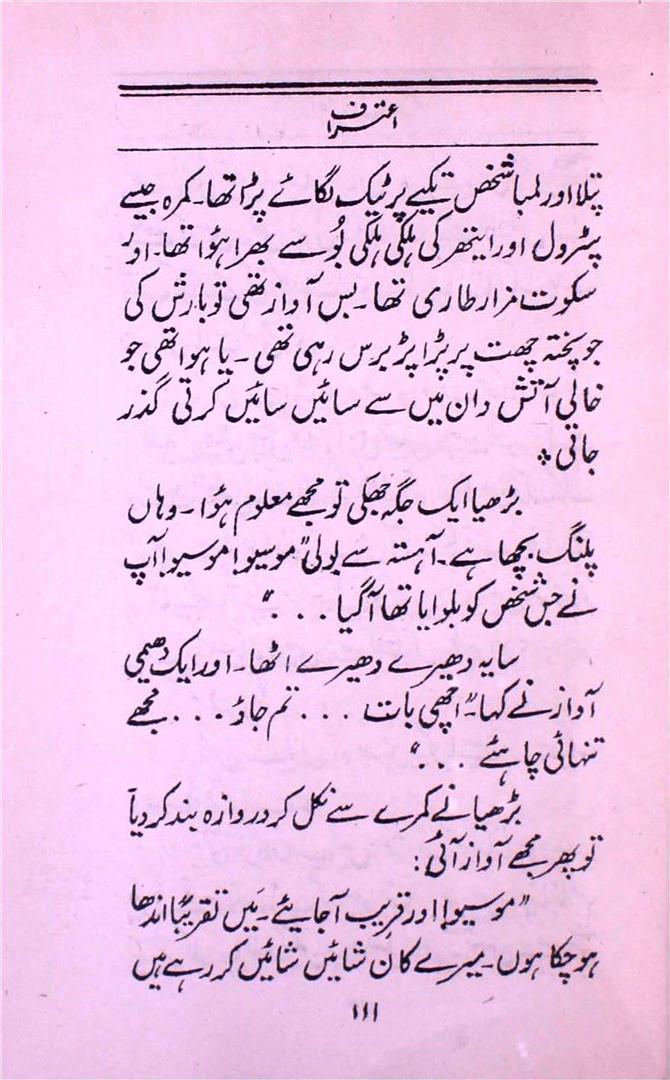 اعتراف
پتلا اور لمبا شخص تکیے پر ٹیک لگائے پڑا تھا۔ کمرہ جیسے
پٹرول اور ایتھر کی ہلکی ہلکی بُو سے بھرا ہؤا تھا۔ اور
سکوت مزار طاری تھا۔ بس آواز تھی تو بارش کی
جو پختہ چھت پر پڑا پڑ برس رہی تھی۔ یا ہوا تھی جو
خالی آتش دان میں سے سائیں سائیں کرتی گذر
جاتی *
بڑھیا ایک جگہ جھکی تو مجھے معلوم ہؤا۔ وہاں
پلنگ بچھا ہے۔ آہستہ سے بولی "موسیو! موسیو! آپ
نے جس شخص کو بلوایا تھا آگیا . . . "
سایہ دھیرے دھیرے اٹھا۔ اور ایک دھیمی
آواز نے کہا۔ "اچھی بات . . . تم جاؤ . . . مجھے
تنہائی چاہئے . . . "
بڑھیا نے کمرے سے نکل کر دروازہ بند کر دیا
تو پھر مجھے آواز آئی :
"موسیو! اور قریب آجایئے۔ میں تقریباً اندھا
ہو چکا ہوں۔ میرے کان شائیں شائیں کر رہے ہیں
۱۱۱